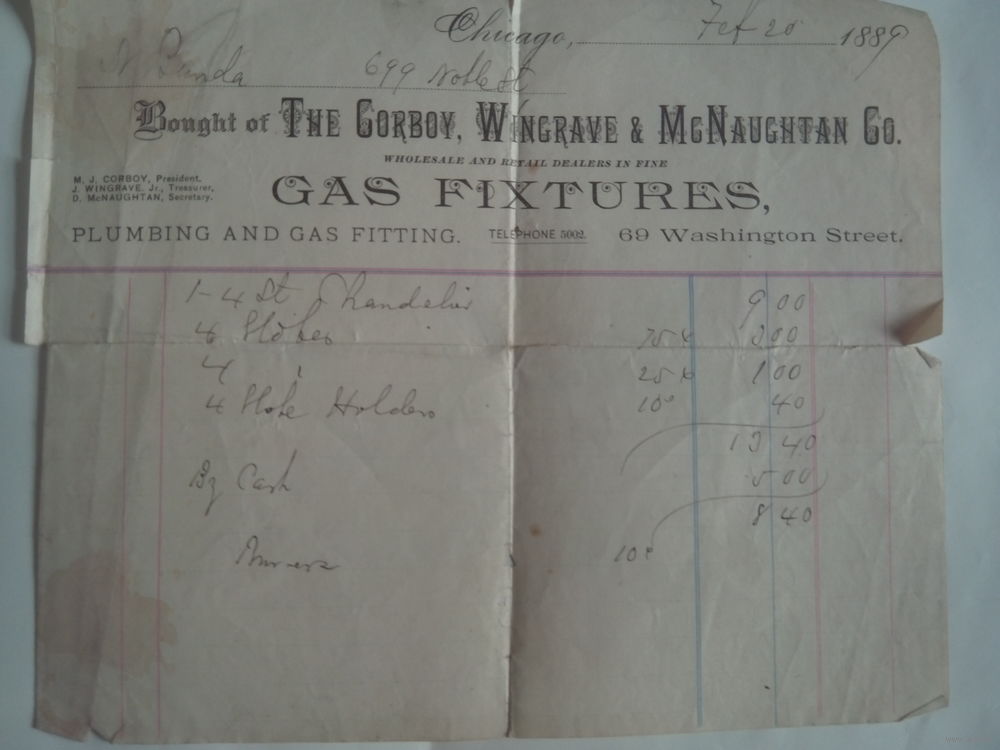 Chicago, Feb 20 1889
699 Noble St
Bought of THE CORBOY, WINGRAVE & McNAUGHTAN CO.
WHOLESALE AND RETAIL DEALERS IN FINE
M. J. CORBOY, President.
J. WINGRAVE, Jr., Treasurer,
D. McNAUGHTAN, Secretary.
GAS FIXTURES,
PLUMBING AND GAS FITTING. TELEPHONE 5002. 69 Washington Street.
1-4 St Chandelier 9 00
4 Globes 75¢ 3 00
4 " 25¢ 1 00
4 Globe Holders 10¢ 40
13 40
By Cash 5 00
8 40
Burners 10¢